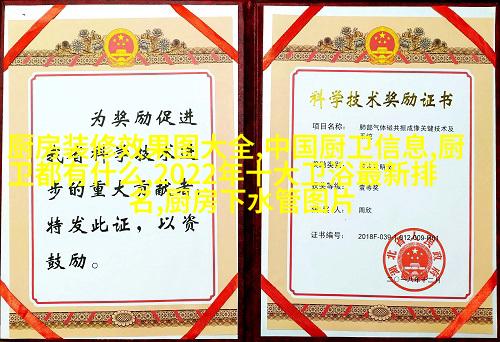 为奖励促进
我省科学技术进
步的重大贡献者，
特发此证，以资
鼓励。
科学技术奖励证书
项目名称：肺部气体磁共振成像关键技术及
壹等奖
周欣
证书编号：
二〇一八年十二月
厨房装修效果图大全,中国厨卫信息,厨
卫都有什么,2022年十大卫浴最新排
名,厨房下水管图片